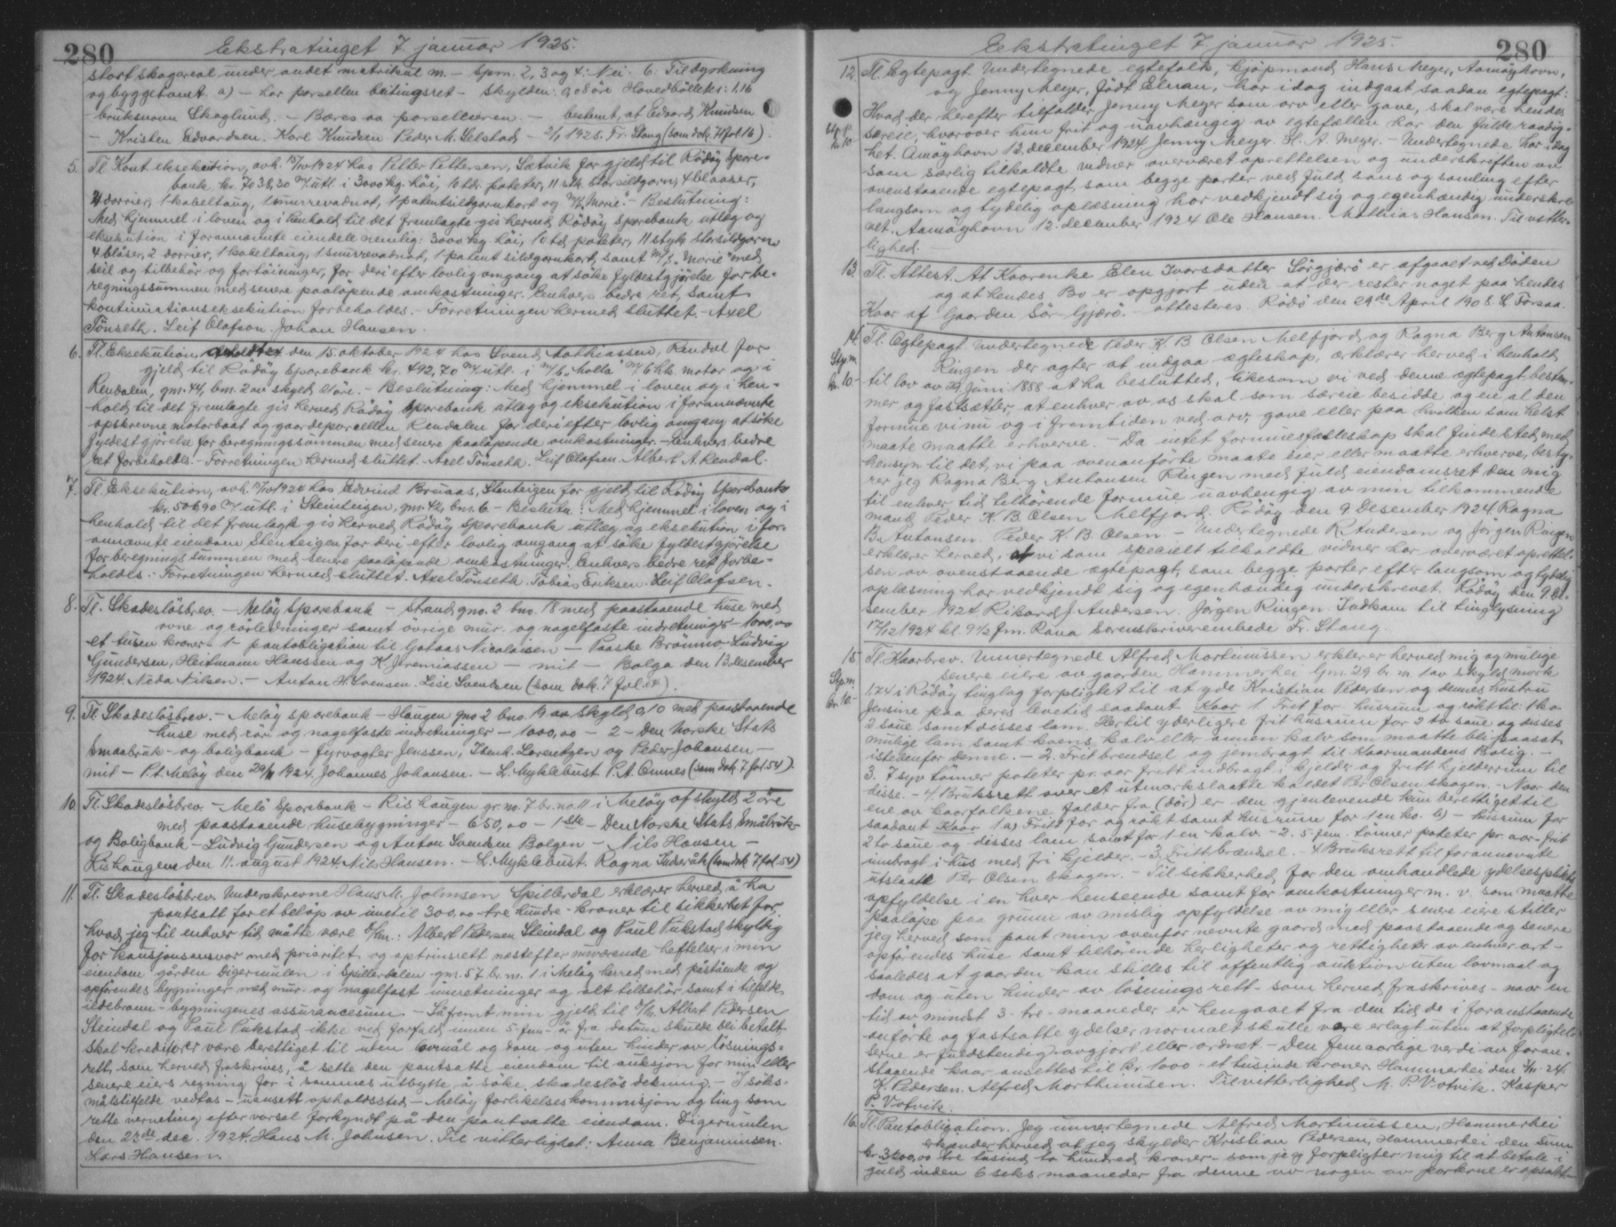 280 Ekstratinget 7 januar 1925.
stort skogareal under andet matrikul m. - Spm. 2, 3 og 4: Nei. 6. Til dyrkning
og byggetomt. a) - har parsellen beitingsret - Skylden: 0,08 øre Hovedbøllets: 1,16
bruksnavn Skoglund. - Bæres av parselleieren. - bestemt, at Edvard Knudsen
- Kristen Edvardsen. Kare Knudsen Peder M. Selstad - 2/1 1925. Fr. Stang (som dok. 71 fol. 16)
5. Tl. Kont. eksekution, avh. 1924 hos Petter Pettersen, Sætvik for gjeld til Rødøy Spare-
bank kr. 7638,30 m/utl. i 3000 kg. høi, 10 td. poteter, 11 stk. storsildgarn, 4 blaaser,
2 dorrier, 1 kabeltaug, 1 snurrevadnot, 1 patentsildgarnkort og m/k. Marie. - Beslutning:
Med hjemmel i loven og i henhold til det fremlagte gis herved Rødøy Sparebank utlæg og
eksekution i forannævnte eiendele nemlig: 3000 kg høi, 10 td. poteter, 11 styk storsildgarn
4 blåser, 2 dorrier, 1 kabeltaug, 1 snurrevadnot, 1 patent sildgarnkort, samt m/k. "Marie" med
seil og tilbehør og fortøininger, for deri efter lovlig omgang at søke fyldestgjørelse for be-
regningssummen med senere paaløpende omkostninger. Enhvers bedre ret samt
kontinuationseksekution forbeholdes. - Forretningen hermed sluttet. - Axel
Tønseth. Leif Olafsen. Johan Hansen.
6. Tl. Eksekution avholdt den 15. oktober 1924 hos Svend Mathiassen, Rendal for
gjeld til Rødøy Sparebank kr. 492,70 m/utl. i m/k. "Molla" m/6 hk. motor og i
Rendalen, gnr. 44, bnr. 2 av skyld 21 øre. - Beslutning: Med hjemmel i loven og i hen-
hold til det fremlagte gis herved Rødøy Sparebank utlæg og eksekution i forannævnte
opskrevne motorbaat og gaardeparsellen Rendalen for deri efter lovlig omgang at søke
fyldestgjørelse for beregningssummen med senere paaløpende omkostninger. - Enhvers bedre
ret forbeholdes. - Forretningen hermed sluttet. Axel Tønseth. Leif Olafsen. Albert A. Rendal.
7. Tl. Eksekution, avh. 1924 hos Edvind Bruaas, Stenteigen for gjeld til Rødøy Sparebank
kr. 506,90 m/utl. i Stenteigen, gnr. 42, bnr. 6 - Beslutn.: Med hjemmel i loven og i
henhold til det fremlagte gis herved Rødøy Sparebank utlæg og eksekution i for-
annævnte eiendom Stenteigen for deri efter lovlig omgang at søke fyldestgjørelse
for beregningssummen med senere paaløpende omkostninger. Enhvers bedre ret forbe-
holdes. - Forretningen hermed sluttet. Axel Tønseth. Tobias Eriksen. Leif Olafsen.
8. Tl. Skadesløsbrev. - Meløy Sparebank - Strand gno. 2 bno. 18 med paastaaende huse med
ovne og rørledninger samt øvrige mur- og nagelfaste indretninger - 1000,00
et tusen kroner - 1 - pantobligation til Gotaas Nicolaisen - Paaske Brønmo, Ludvig
Gundersen, Heitmann Hanssen og K. Jeremiassen - mit - Bolga den 13 desember
1924. Neda Nilsen. - Anton H. Svensen. Lise Svendsen (som dok. 7 fol. 54).
9. Tl. Skadesløsbrev. - Meløy sparebank - Haugen gno 2 bno. 19 av skyld 0,10 med paastaaende
huse med rør og nagelfaste indretninger - 1000,00 - 2 - Den Norske Stats
Smaabruk- og boligbank - fyrvogter Jenssen, Tkenk. Lorentzen og Peder Johansen -
mit - P.t. Meløy den 24/11 1924. Johannes Johansen. - L. Myklebust. P. A. Ornnes (som dok. 7 fol. 54)
10. Tl. Skadesløsbrev. - Melø Sparebank - Rishaugen gr. no. 7 br. no. 11 i Meløy af skyld 2 øre
med paastaaende husebygninger - 650,00 - 1 ste - Den Norske Stats Småbruk-
og Boligbank - Ludvig Gundersen og Anton Svendsen Bolgen - Nils Hansen -
Rishaugene den 11. august 1924 Nils Hansen. - L. Myklebust. Ragna Inderuk (som dok. 7 fol. 54)
11. Tl. Skadesløsbrev. Underskrevne Hans M. Johnsen Spillerdal erklærer herved å ha
pantsatt for et beløp av inntil 300,00 - tre hundre - kroner til sikkerhet for
hvad jeg til enhver tid måtte være d'hrr.: Albert Pedersen Steindal og Paul Pukstad skyldig
for kausjonsansvar med prioritet og optrinsrett næstefter nuværende heftelser i min
eiendom gården Digermulen i Spillerdalen gnr. 57 br. nr. 1 i Meløy herred med påstående og
opførendes bygninger med mur- og nagelfast innretninger og alt tilbehør samt i tilfelde
ildebrann - bygningenes assurancesum - Såfremt min gjeld til d'hrr. Albert Pedersen
Steindal og Paul Pukstad ikke ved forfald innen 5 - fem - år fra datum skulde bli betalt
skal kreditorer være berettiget til uten lovmål og dom og uten hinder av løsnings-
rett, som herved fraskrives, å sette den pantsatte eiendom til auksjon for min eller
senere eiers regning for i sammes utbytte å søke skadesløs dekning. - I søks-
målstilfelde vedtas - uansett opholdssted - Meløy forlikelseskommisjon og ting som
rette verneting efter varsel forkyndt på den pantsatte eiendom. Digermulen
den 23de dec. 1924. Hans M. Johnsen. Til vitterlighet: Anna Benjaminsen.
Lars Hansen.
Ekstratinget 7 januar 1925. 280
12. Tl. Egtepagt. Undertegnede egtefolk, kjøpmand Hans Meyer, Aamøyhavn,
og Jenny Meyer, født Elnan, har idag indgaat saadan egtepagt:
Hvad der herefter tilfalder Jenny Meyer som arv eller gave, skal være hendes
særeie, hvorover hun frit og uavhængig av egtefællen har den fulde raadig-
het. Amøyhavn 12. december 1924. Jenny Meyer. H. A. Meyer. - Undertegnede har idag
som særlig tilkaldte vidner overværet oprettelsen og underskriften av
ovenstaaende egtepagt, som begge parter ved fuld sans og samling efter
langsom og tydelig oplæsning har vedkjendt sig og egenhændig underskre-
vet. Aamøyhavn 12. december 1924 Ole Hansen. Mathias Hanson. Til vitter-
lighed. -
13. Tl. Attest. At Kaarenke Elen Ivarsdatter Sørgjærø er afgaaet ved Døden
og at hendes Bo er opgjort uden at der rester noget paa hendes
Kaar af Gaarden Sør-Gjærø. - attesteres. Rødø den 29de April 1905. C. Forsaa.
14. Tl. Egtepagt. Undertegnede Peder K. B. Olsen Melfjord og Ragna Berg Antonsen
Stpm. kr. 10- Ringen der agter at indgaa ægteskap, erklærer herved i henhold
til lov av 29 juni 1888 at ha besluttet, likesom vi ved denne egtepagt bestem-
mer og fastsætter, at enhver av os skal som særeie besidde og eie al den
formue vi nu og i fremtiden ved arv, gave eller paa hvilken som helst
maate maatte erhverve. - Da intet formuesfælleskap skal finde sted med
hensyn til det, vi paa ovenanførte maate eier eller maatte erhverve, besty-
rer jeg Ragna Berg Antonsen Ringen med fuld eiendomsret den mig
til enhver tid tilhørende formue uavhengig av min tilkommende
mand Peder K. B. Olsen Melfjord. Rødøy den 9 Desember 1924 Ragna
B. Antonsen. Peder K. B. Olsen. - Undertegnede R. Andersen og Jørgen Ringen
erklærer herved, at vi som specielt tilkaldte vidner har overværet oprettel-
sen av ovenstaaende ægtepagt, som begge parter efter langsom og tydelig
oplæsning har vedkjendt sig og egenhændig underskrevet. Rødøy den 9 De-
sember 1924 Rikard J. Andersen. Jørgen Ringen. Indkom til tinglysning
17/12 1924 kl. 9 1/2 fm. Rana Sorenskriverembede Fr. Stang.
15. Tl. Kaarbrev. Undertegnede Alfred Mortinussen erklærer herved mig og mulige
Stpm. kr. 10- senere eiere av gaarden Hammerhei Gnr. 29 br. nr. 1 av skyld mark
1,74 i Rødøy tinglag forpligtet til at yde Kristian Pedersen og dennes hustru
Jensine paa deres livetid saadant Kaar 1. Frit for husrum og røkt til: 1 ko
2 saue samt disses lam. Hertil yderligere frit husrum for 2 to saue og disses
mulige lam samt koens kalv eller annen kalv som maatte bli paasat
istedenfor denne. - 2. Frit brendsel og fjembragt til Kaarmandens Bolig. -
3. 7 syv tønner poteter pr. aar fritt indbragt i kjelder og fritt kjelderrum til
disse. - 4. Bruksrett over et utmarksslaatte kaldet Per Olsen skogen. - Naar den
ene av kaarfolkene falder fra (dør) er den gjenlevende kun berettiget til
saadant Kaar 1 a) Fritt for og røkt samt husrum for 1 en ko. b) - husrum for
2 to saue og disses lam, samt for 1 en kalv. - 2. 5 - fem - tønner poteter pr. aar - frit
innbragt i hus med fri kjelder. - 3. Fritt brændsel. - 4 Bruksrett til forannævnte
utslaatt Per Olsen skogen. - Til sikkerhed for den omhandlede ydelsesplikts
opfyldelse i en hver henseende samt for omkostninger m. v. som maatte
paaløpe paa grunn av mislig opfyldelse av mig eller senere eiere stiller
jeg herved som pant min ovenfor nevnte gaard med paastaaende og senere
opførendes huse samt tilhørende herligheter og rettigheter av enhver art -
saaledes at gaarden kan stilles til offentlig auktion uten lovmaal og
dom og uten hinder av løsningsrett - som herved fraskrives - naar en
tid av mindst 3 - tre - maaneder er hengaaet fra den tid de i foranstaaende
anførte og fastsatte ydelser normalt skulle være erlagt uten at forpligtel-
serne er fuldstendig avgjort eller ordnet. - Den femaarlige verdi av foran-
staaende kaar ansettes til kr. 1000 - et tusinde kroner. Hammerhei den 24.
K. Pedersen. Alfred Morthinusen. Til vitterlighed M. P. Votvik. Kasper
P. Votvik.
16. Tl. Pantobligation. Jeg undertegnede Alfred Mortinussen, Hammerhei
erkjender herved at jeg skylder Kristian Pedersen, Hammerhei den sum
kr. 3200,00 tre tusind to hundred kroner - som jeg forpligter mig til at betale i
guld inden 6 seks maaneder fra denne av nogen av parterne er opsakt -